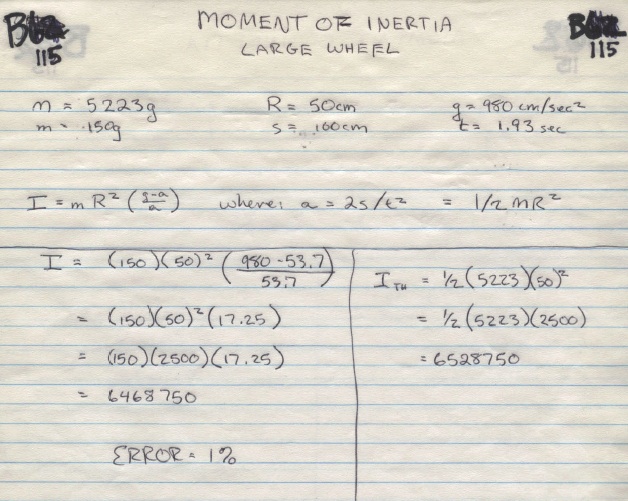 MOMENT OF INERTIA
LARGE WHEEL
115
115
M = 5223g R = 50cm g = 980 cm/sec²
m = 150g s = 100cm t = 1.93 sec
I = mR² ((g-a)/a) where: a = 2s/t² = 1/2 MR²
I = (150)(50)² ((980-53.7)/53.7)
= (150)(50)²(17.25)
= (150)(2500)(17.25)
= 6468750
ERROR = 1%
I_TH = ½(5223)(50)²
= ½(5223)(2500)
= 6528750